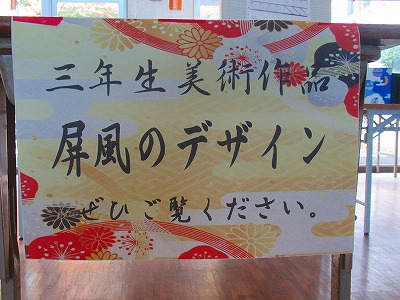 三年生美術作品
屏風のデザイン
ぜひご覧ください。